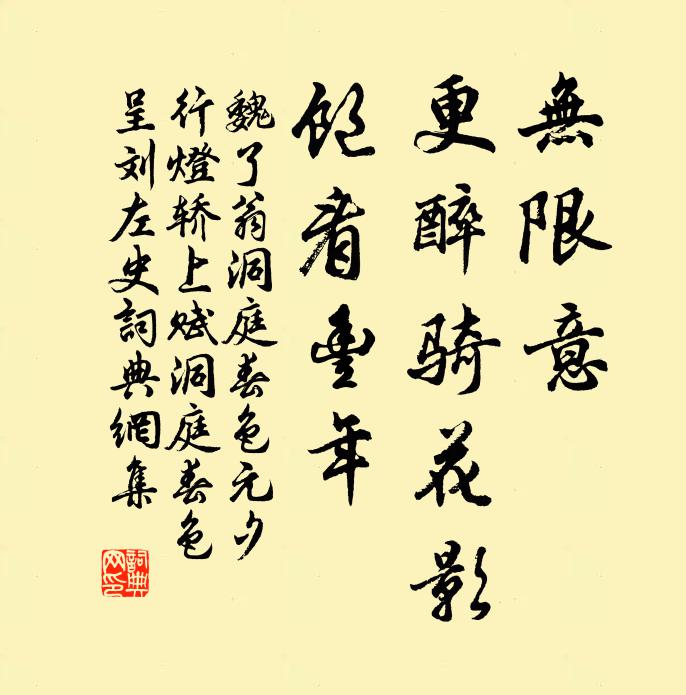 無限意
更醉騎花影
飽看豐年
魏了翁洞庭春色元夕
行燈轿上赋洞庭春色
呈刘左史詞典網集
詞典網印